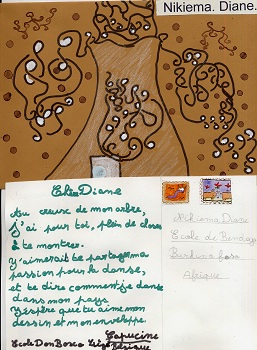 Nikiema. Diane.
Chère Diane
Au creux de mon arbre,
j'ai pour toi, plein de choses
à te montrer.
J'aimerai te partager ma
passion pour la danse,
et te dire comment je danse
dans mon pays
J'espère que tu aime mon
dessin et mon enveloppe.
Capucine
Ecole Don Bosco Liège Belgique
Nikiema Diane
Ecole de
Burkina faso
Afrique